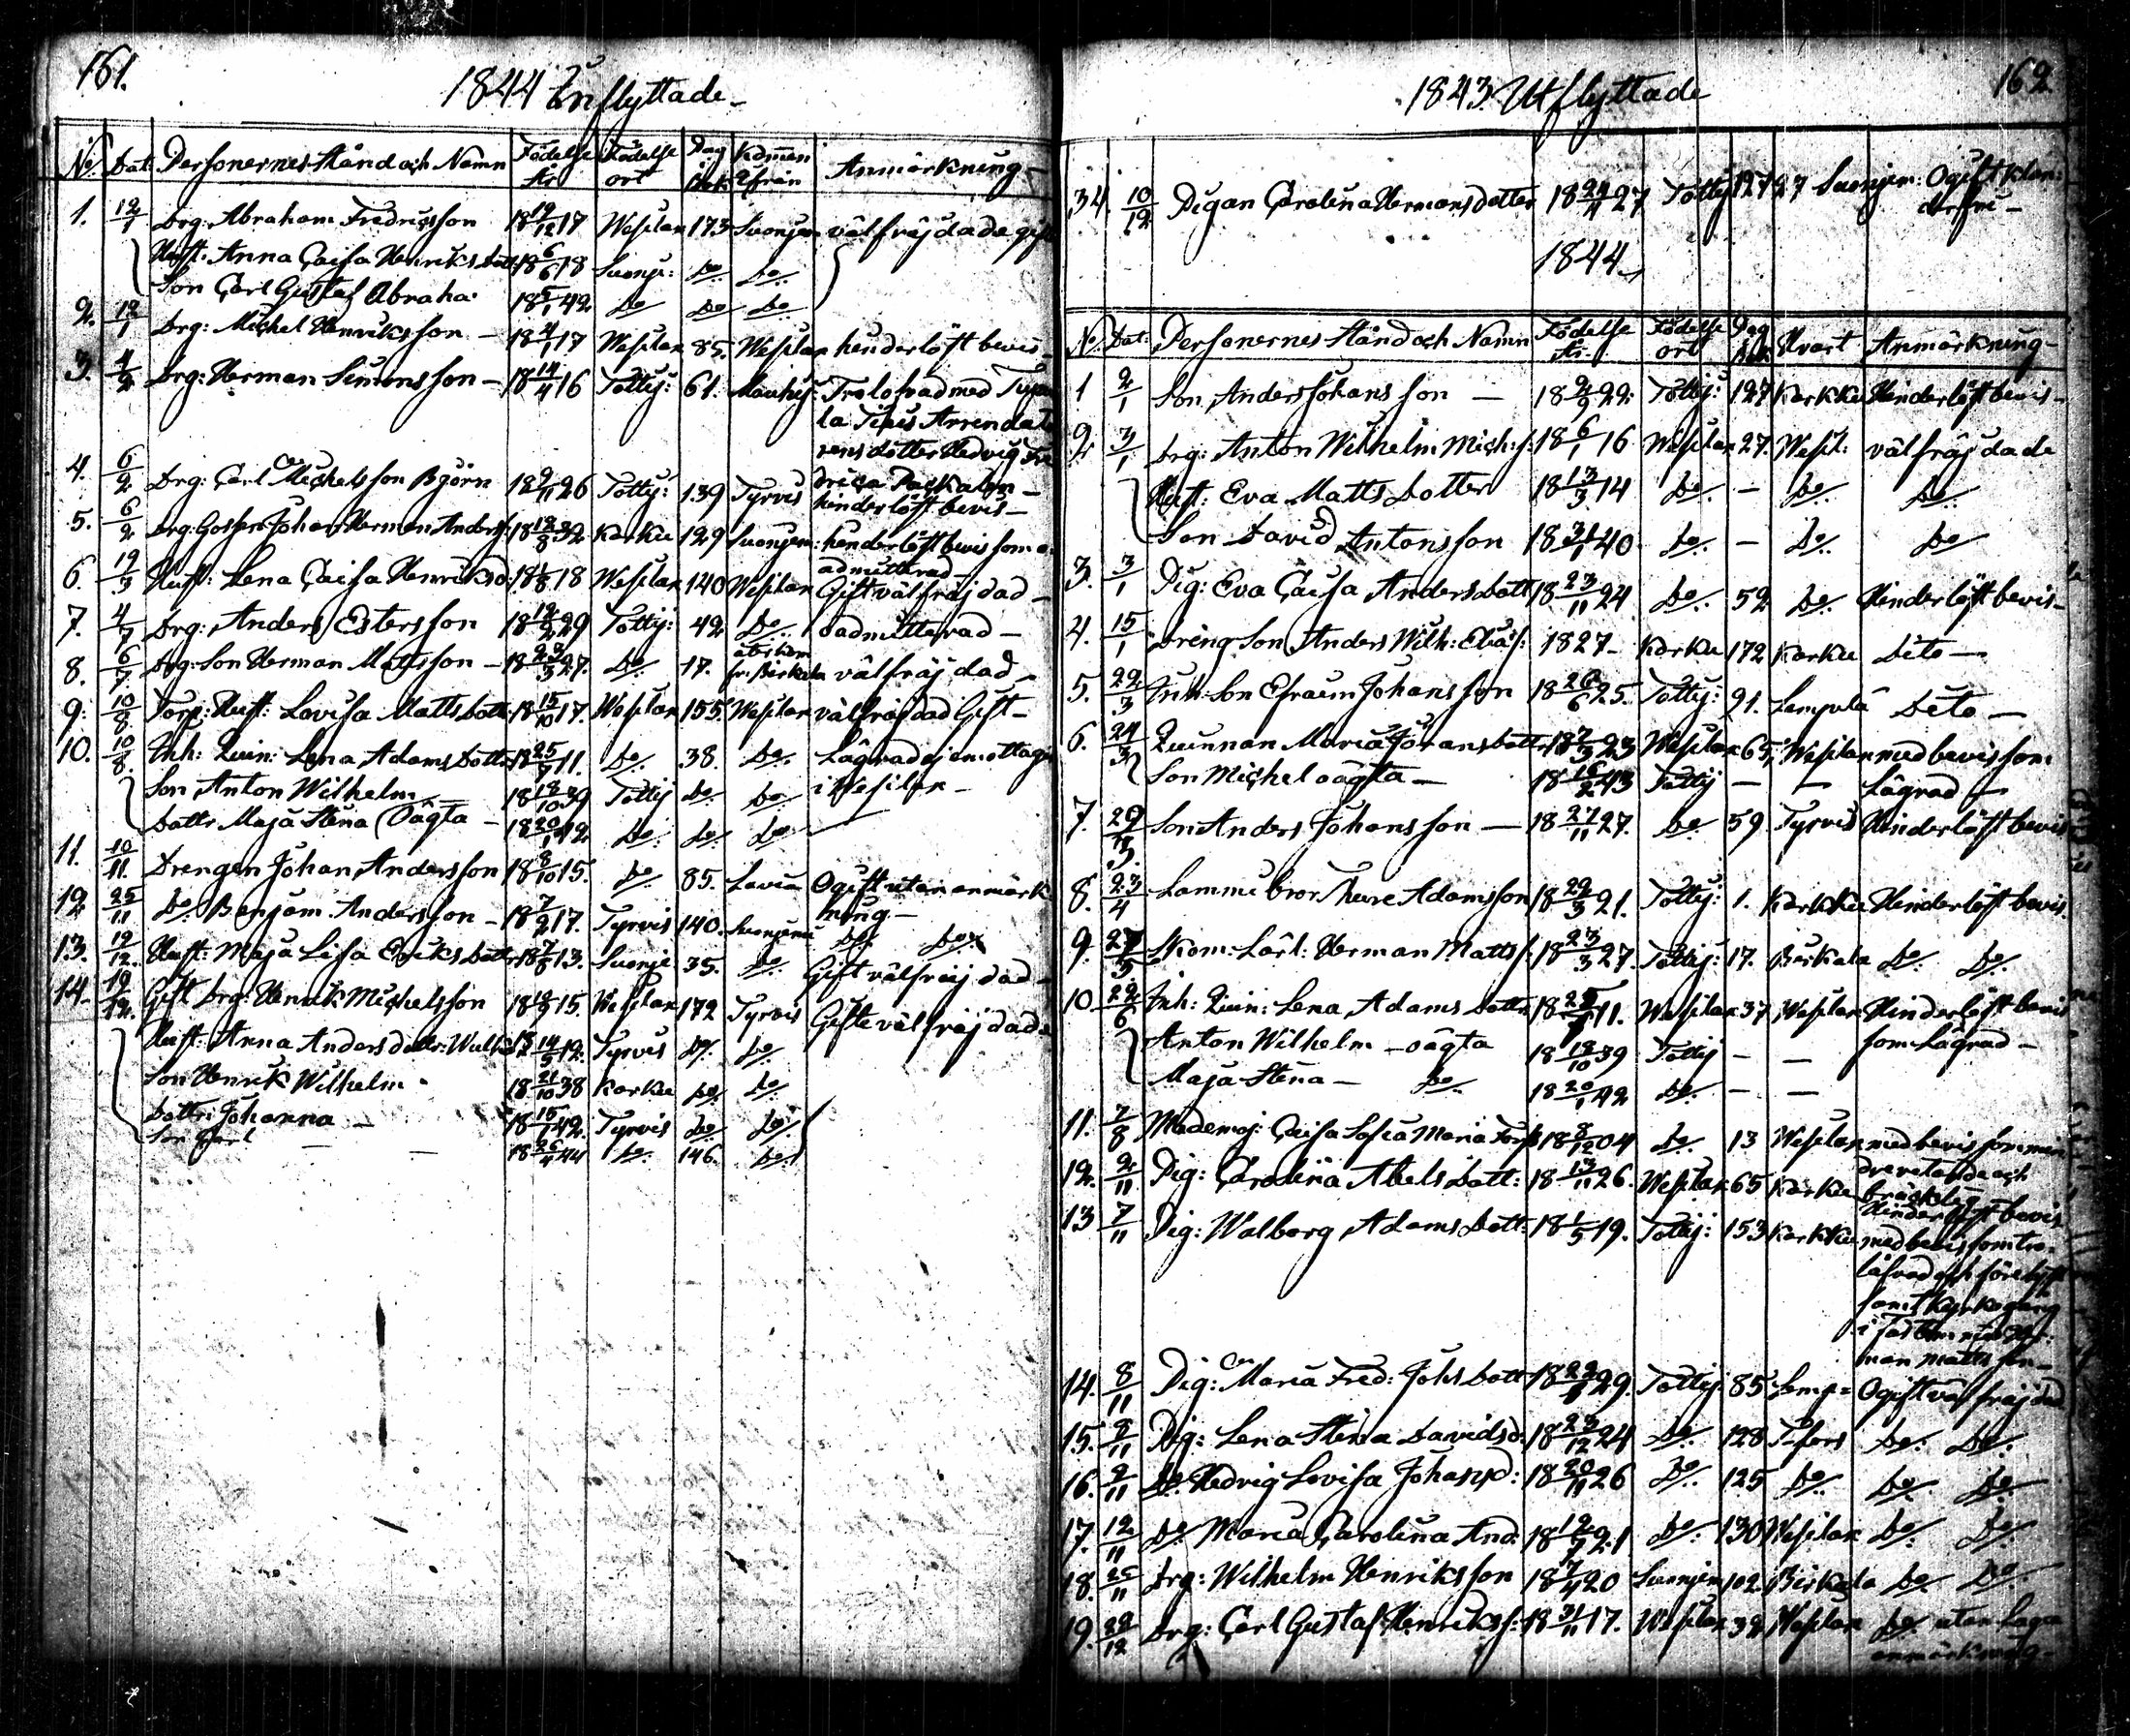 161.
1844 Inflyttade
No. Dat: Personernes Stånd och Namn Födelse År Födelse ort Pag i Bok Kommen ifrån Anmärkning
1. 12/1 Drg: Abraham Fredricsson 18 19/12 17 Wesilax 173 Suonjem välfräjdade gift
Hust: Anna Caisa Henriks dott 18 6/6 18 Suonje: Do Do
Son Carl Gustaf Abraha: 18 5/1 42 Do Do Do
2. 12/1 Drg: Michel Henriksson 18 4/1 17 Wesilax 85. Wesilax hinderlöst bevis
3. 4/2 Drg: Herman Simonsson 18 14/4 16 Tottij: 61. Mouhij: Trolofvad med
la Arrendato
rens dotter Hedvig Fre
drica
4. 6/2 Drg: Carl Michelsson Björn 18 2/11 26 Tottij: 139 Tyrvis hinderlöst bevis
5. 6/2 Drg: Johan Herman Anders: 18 12/8 32 Karku 129 Suonjem: hinderlöst bevis som o
admitterad
6. 19/3 Hust: Lena Caisa Henriksd: 18 1/8 18 Wesilax 140 Wesilax Gift välfräjdad
7. 4/7 Drg: Anders Estersson 18 12/2 29 Tottij: 42 Do oadmitterad
8. 6/7 Drg: Son Herman Mattsson 18 23/3 27. Do 17. fr: Birkala välfräjdad
9. 10/8 Torp: Hust: Lovisa Matts dott 18 15/10 17. Wesilax 155. Wesilax välfräjdad Gift
10. 10/8 Inh: Qvin: Lena Adams dotter 18 25/7 11. Do 38. Do Lägrad ej emottagen
Son Anton Wilhelm 18 18/10 39 Tottij Do Do i Wesilax
Dottr Maja Stina Oägta 18 20/1 42 Do Do Do
11. 10/11. Drengen Johan Andersson 18 8/10 15. Do 85. Lavia Ogift utan anmärk
ning
12 25/11 Do Benjam: Andersson 18 7/2 17. Tyrvis 140. Suonjemi Do Do
13. 12/12. Hust: Maja Lisa Eriks dotter 18 7/8 13. Suonje 35. Do Gift välfräjdad
14. 19/12. Gift Drg: Henrik Michelsson 18 12/9 15. Wesilax 172 Tyrvis Gifte välfräjdade
Hust: Anna Anders dottr: 18 14/3 12. Tyrvis Do Do
Son Henrik Wilhelm 18 21/10 38 Karku Do Do
Dottr: Johanna 18 15/1 42. Tyrvis Do Do
Son Carl 18 26/4 44 Do 146. Do
162
1843 Utflyttade
34. 10/12 Pigan Carolina Hermans dotter 18 24/4 27 Tottij 127 Suonjem: Ogift klan-
derfri
1844
No. Dat: Personernes Stånd och Namn Födelse År. Födelse ort Pag i Bok Hvart Anmärkning
1 2/1 Son Anders Johansson 18 2/9 22 Tottij: 127 Karkku Hinderlöst bevis
2 3/1 Drg: Anton Wilhelm Mich:s: 18 6/1 16 Wesilax 27. Wesil: välfräjdade
Hust: Eva Matts dotter 18 13/3 14 Do Do Do
Son David Antonsson 18 31/1 40 Do Do Do
3. 3/1 Pig: Eva Caisa Anders dott 18 23/11 24 Do 52 Do Hinderlöst bevis
4. 15/1 Dreng Son Anders Wilh: Elias: 1827 Karku 172 Karku Dito
5. 22/3 Inh: Son Efraim Johansson 18 26/6 25. Tottij: 91. Lempälä Dito
6. 24/3 Quinnan Maria Görans dottr 18 7/3 23 Wesilax 65. Wesilax med bevis som
Son Michel oägta 18 16/2 43 Tottij Lägrad
7. 29/3. Son Anders Johansson 18 27/11 27. Do 59. Tyrvis Hinderlöst bevis
8. 23/4 Lammi bror Thure Adamsson 18 22/3 21. Tottij: 1. Karkku Hinderlöst bevis
9. 27/5 Skom: Lärl: Herman Matts s: 18 23/3 27. Tottij: 17. Birkala Do Do
10. 22/6 Inh: Qvin: Lena Adams dottr 18 25/7 11. Wesilax 37 Wesilax Hinderlöst bevis
Anton Wilhelm oägta 18 18/10 39 Tottij som Lägrad
Maja Stina Do 18 20/1 42 Do
11. 7/8 Mademoj: Caisa Sofia Maria 18 8/12 04 Do 13 Wesilax med bevis som min
dre vetande och
bräcklig
12. 2/11 Pig: Carolina Abels dott: 18 13/11 26. Wesilax 65 Karku Hinderlöst bevis
13 7/11 Pig: Walborg Adams dott: 18 1/5 19. Tottij: 153 Karkku med bevis som tro-
låfvad och förelyst
samt Kyrkogäng
man Mattsson
14. 8/11 Pig: Maria Fred: Johs dott 18 22/1 29. Tottij 85 Lemp= Ogift välfräjdad
15. 8/11 Pig: Lena Stina Davids d: 18 23/12 24 Do 128 T:fors Do Do
16. 9/11 Do Hedvig Lovisa Johans d: 18 20/11 26 Do 125 Do Do Do
17. 12/11 Do Maria Carolina And: 18 12/7 21 Do 130 Wesilax Do Do
18. 25/11 Drg: Wilhelm Henriksson 18 17/4 20 Suonjem 102. Birkala Do Do
19. 22/12 Drg: Carl Gustaf Henriks s: 18 31/11 17. Wesilax 38 Wesilax Do utan laga
anmärkning